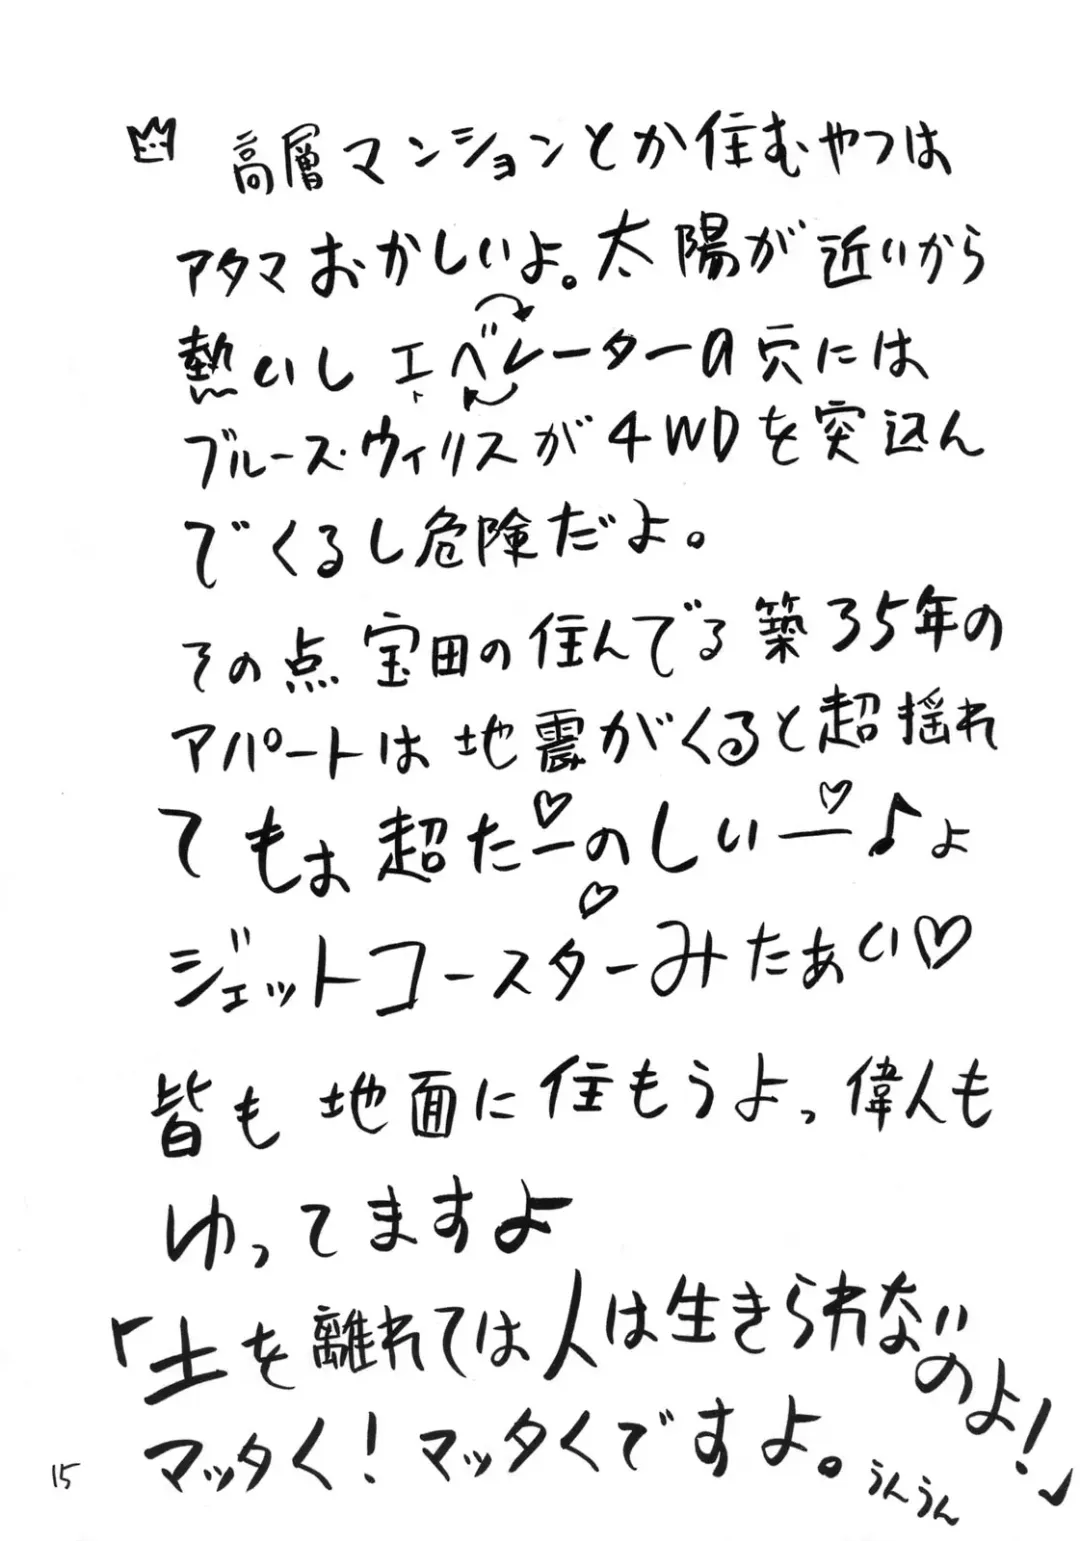 高層マンションとか住むやつは
アタマおかしいよ。太陽が近いから
熱いしエベレーターの穴には
ブルース・ウィリスが4WDを突込ん
でくるし危険だよ。
その点宝田の住んでる築35年の
アパートは地震がくると超揺れ
てもぉ超たーのしいー♪よ
ジェットコースターみたぁい♡
皆も地面に住もうよっ偉人も
ゆってますよ
「土を離れては人は生きられないのよ!」
マッタく!マッタくですよ。うんうん
15